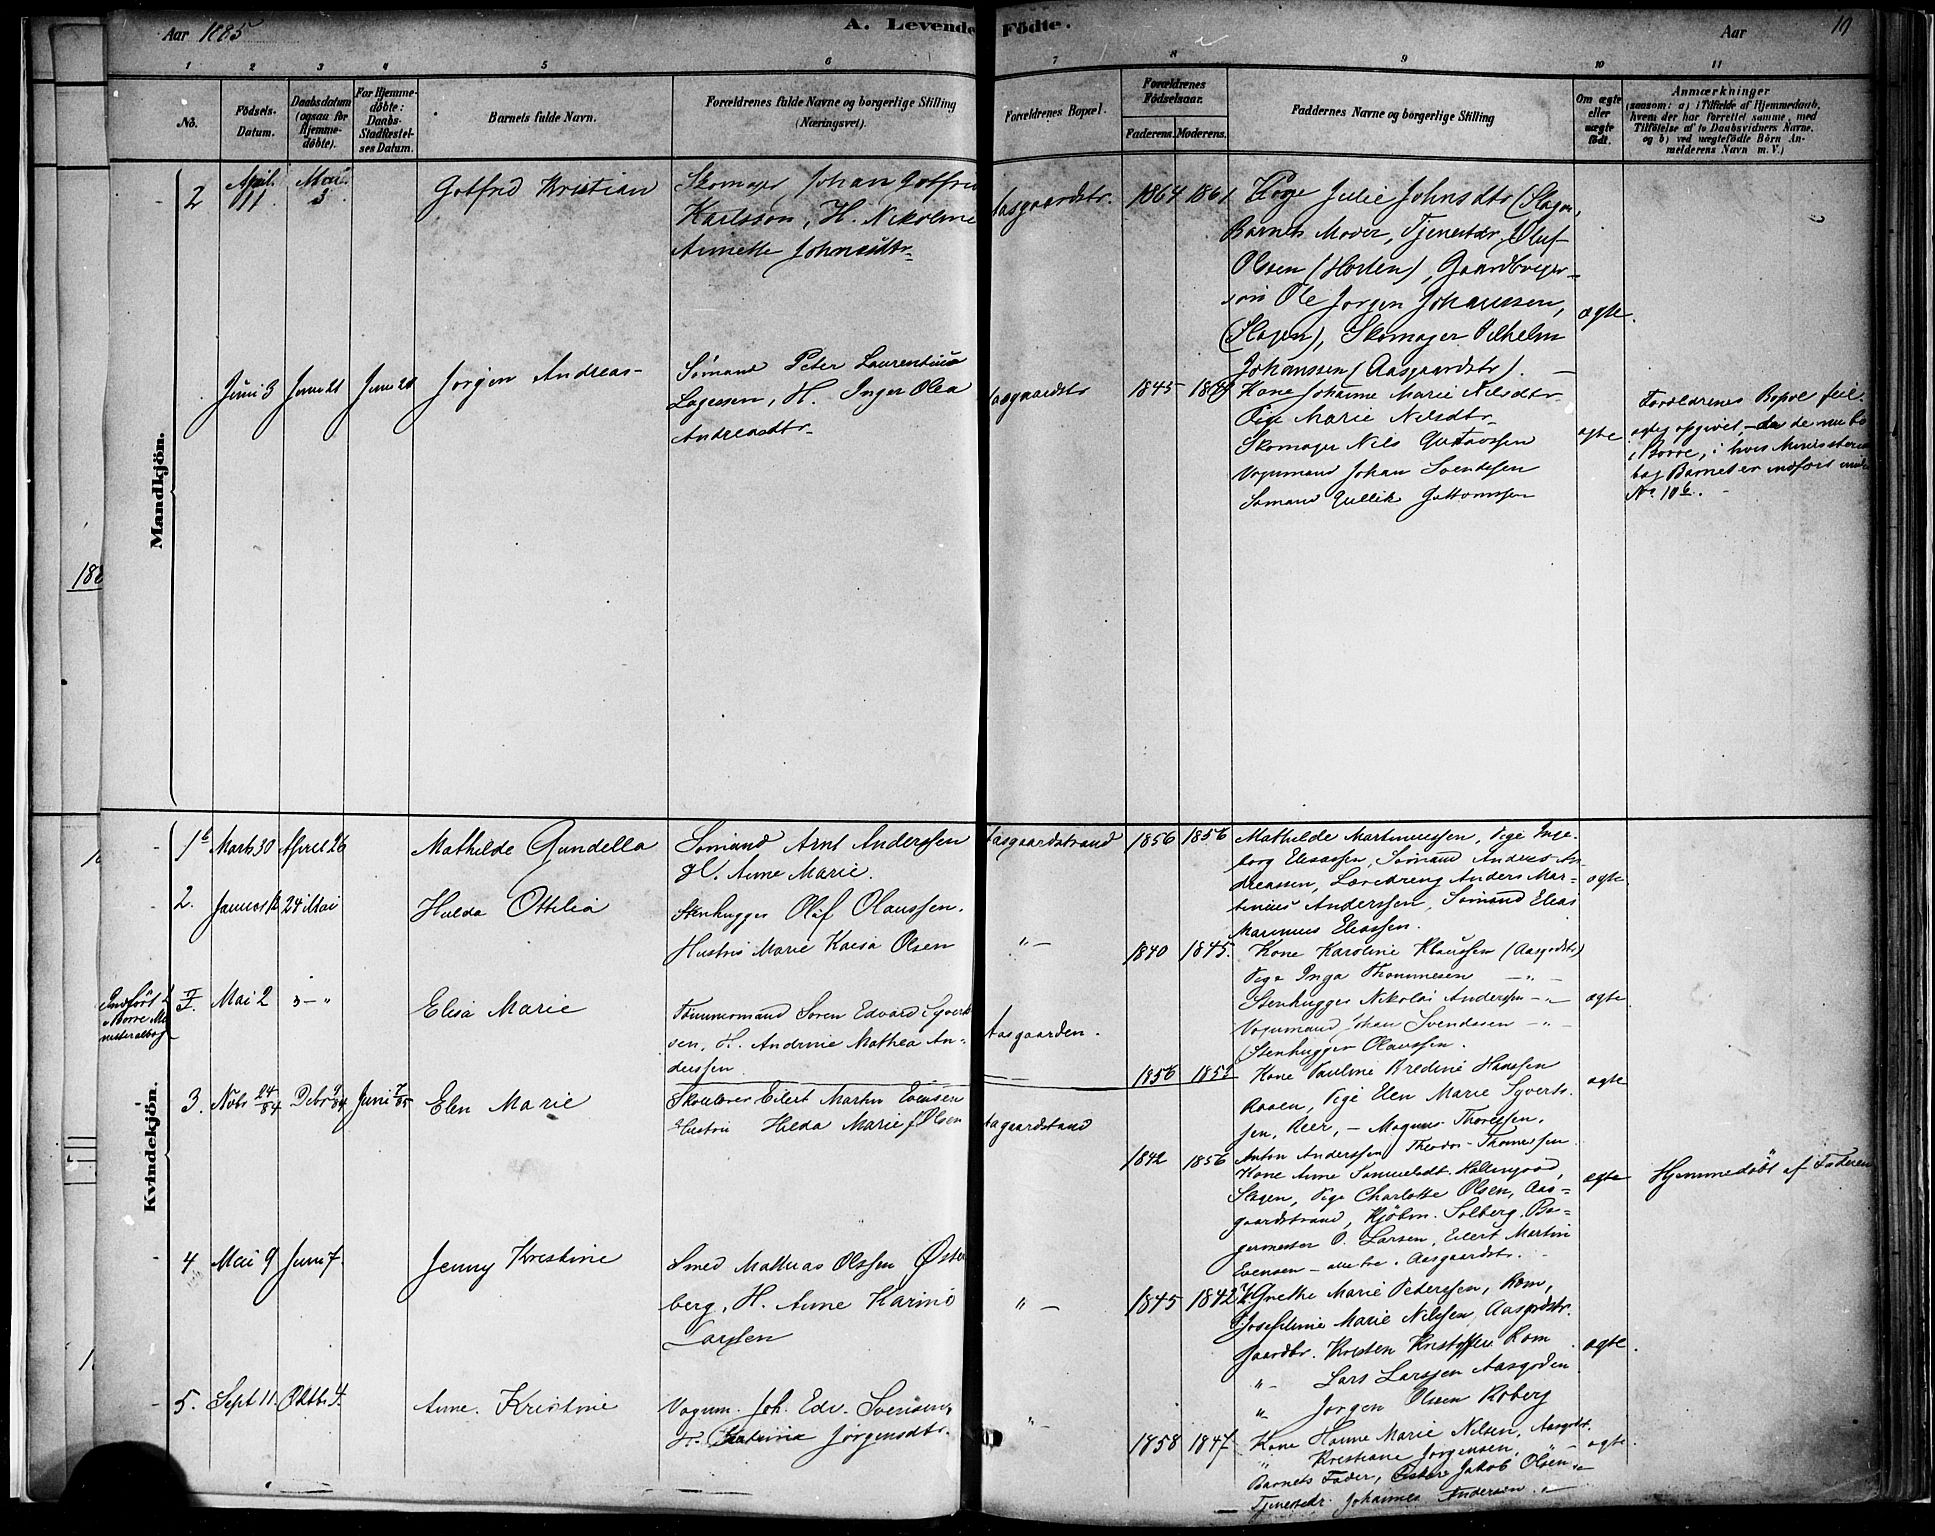 Aar 1885
A. Levende Födte.
Aar
19
1 2 3 4 5 6 7 8 9 10 11
No.
Födsels-
Datum.
Daabsdatum
(ogsaa for
Hjemme-
döbte).
For Hjemme-
döbte:
Daabs-
Stadfæstel-
ses Datum.
Barnets fulde Navn.
Forældrenes fulde Navne og borgerlige Stilling
(Næringsvei).
Forældrenes Bopæl.
Forældrenes
Födselsaar.
Faderens. Moderens.
Faddernes Navne og borgerlige Stilling
Om ægte
eller
uægte
födt.
Anmærkninger
(saasom: a) i Tilfælde af Hjemmedaab,
hvem der har forrettet samme, med
Tilföielse af to Daabsvidners Navne.
og b) ved uægtefödte Börn An-
melderens Navn m. V.)
Mandkjön.
2 April 11 Mai 3 Gotfred Kristian
Skomager Johan Gotfred
Karlsson, H. Nikoline
Annette Johnsdtr.
Aasgaardstr. 1864 1861
Pige Julie Johnsdtr (Slagen,
Barnets Moder, Tjenestdr. Oluf
Olsen (Horten), Gaardbruger-
sön Ole Jörgen Johannsen,
(Slagen), Skomager Vilhelm
Johanssen (Aasgaardstr). —
ægte.
Juni 3 Juni 21 Juni 21 Jörgen Andreas-
Sömand Peter Laurentius
Lagesen, H. Inger Olea
Andreasdtr.
Aasgaardstr 1845
Kone Johanne Marie Nilsdtr
Pige Marie Nilsdtr.
Skomager Nils Gustavssen
Vognmand Johan Svendssen
Sömand Gullik Guttormssen
ægte
Forældrenes Bopæl feil-
agtig opgivet, da de nu bo
i Borre, i hvis Ministerial
bog Barnet er indfört under
No. 10 b. —
188
Kvindekjön.
1 b Marts 30 April 26 Mathilde Gundella
Sömand Arnt Anderssen
H. Anne Marie.
Aasgaardstrand 1856 1856
Mathilde Martinussen, Pige Inge-
borg Eliassen, Sömand Anders An-
dreassen, Læredreng Anders Mar-
tinius Anderssen, Sömand Elias
Marinius Eliassen.
ægte.
2. Januar 24 Mai Hulda Ottilia
Stenhugger Olaf Olaussen.
Hustru Marie Kaisa Olsen
" — 1840 1845.
Kone Karoline Klaussen (Aasgrdstr)
Pige Inga Thommesen — " —
Stenhugger Nikolai Anderssen — "
Vognmand Johan Svendssen — " —
Stenhugger Olaussen.
ægte
Indfört i
Borre Mi
nisterialbog
Mai 2 3 — " Elisa Marie
Tömmermand Sören Edvard Syvert
sen, H. Andrine Mathea An-
derssen.
Aasgaarden. 1856 1852
Kone Pauline Bredine Hanssen
Raaen, Pige Elen Marie Syverts.
sen, — Magnus Thorssen,
Anton Anderssen, Theodor Thomessen.
ægte
3. Nobr 24/84 Debr 9/84 Juni 7/85 Elen Marie
Skolelærer Eilert Martin Evensen
Hustru Hilda Marie f. Olsen
Aagaardstand 1842 1856
Kone Anne Samuelsdt.
Slagen, Pige Charlotte Olsen, Aas-
gaardstrand, Kjöbm. Solberg, Bor-
germester O. Larsen, Eilert Martin
Evensen — alle tre i Aasgaardstr. —
ægte
Hjemmedöbt af Faderen
4 Mai 9 Juni 7. Jenny Kristine
Smed Mathias Olssen Öster
berg, H. Anne Karine
Larssen
" — 1845 1842
Grethe Marie Peterssen, Rom,
Josefine Marie Nilssen, Aasgrdstr.
Gaardbr. Kristen Kristoffers. Rom
" — Lars Larssen Aasgrden
" Jörgen Olssen Roberg
ægte
5. Sept 11. Oktb 4. Anne. Kristine
Vognm. Joh. Edv. Svensen,
H. Katrine Jörgensdtr.
" — 1858 1847
Kone Hanne Marie Nilsen, Aasgrdst.
" Kristiane Jörgensen, " —
Barnets Fader, Jakob Olsen "
Tjenestdr. Johannes Andersen "
ægte.